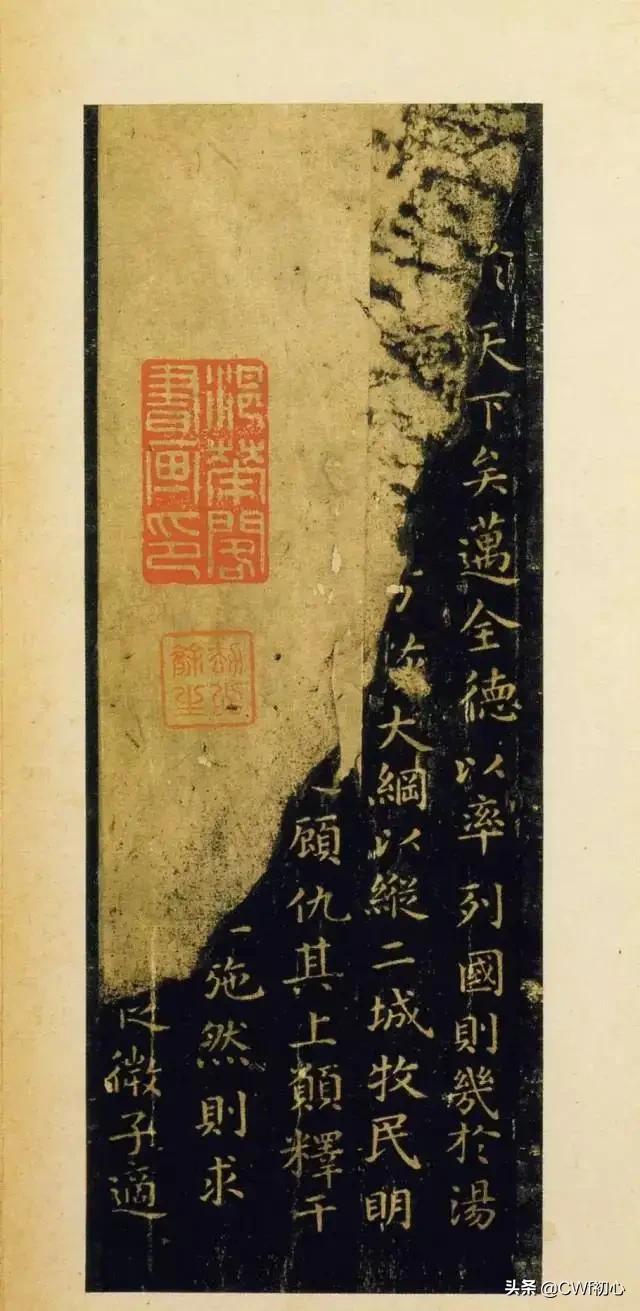 天下矣邁全德以率列國則幾於湯
大綱以縱二城牧民明
顧仇其上願釋干
施然則求
微子適
閣書畫印
头条 @CWf初心